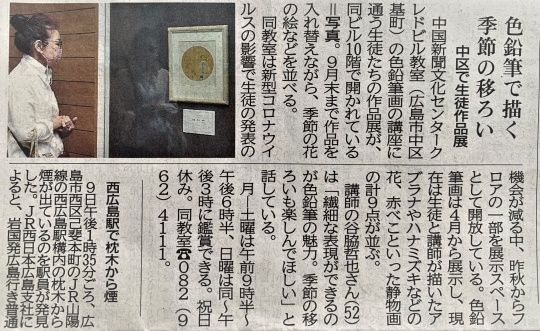 色鉛筆で描く
季節の移ろい
中区で生徒作品展
中国新聞文化センターク
レドビル教室（広島市中区
基町）の色鉛筆画の講座に
通う生徒たちの作品展が、
同ビル10階で開かれている
＝写真。９月末まで作品を
入れ替えながら、季節の花
の絵などを並べる。
同教室は新型コロナウイ
ルスの影響で生徒の発表の
機会が減る中、昨秋からフ
ロアの一部を展示スペース
として開放している。色鉛
筆画は４月から展示し、現
在は生徒と講師が描いたア
ブラナやハナミズキなどの
花、赤べこといった静物画
の計９点が並ぶ。
講師の谷脇哲也さん(52)
は「繊細な表現ができるの
が色鉛筆の魅力。季節の移
ろいも楽しんでほしい」と
話している。
月―土曜は午前９時半～
午後６時半、日曜は同～午
後３時に鑑賞できる。祝日
休み。同教室☎082（9
62）4111。
西広島駅で枕木から煙
９日午後１時35分ごろ、広
島市西区己斐本町のＪＲ山陽
線の西広島駅構内の枕木から
煙が出ているのを駅員が発見
した。ＪＲ西日本広島支社に
よると、岩国発広島行き普通